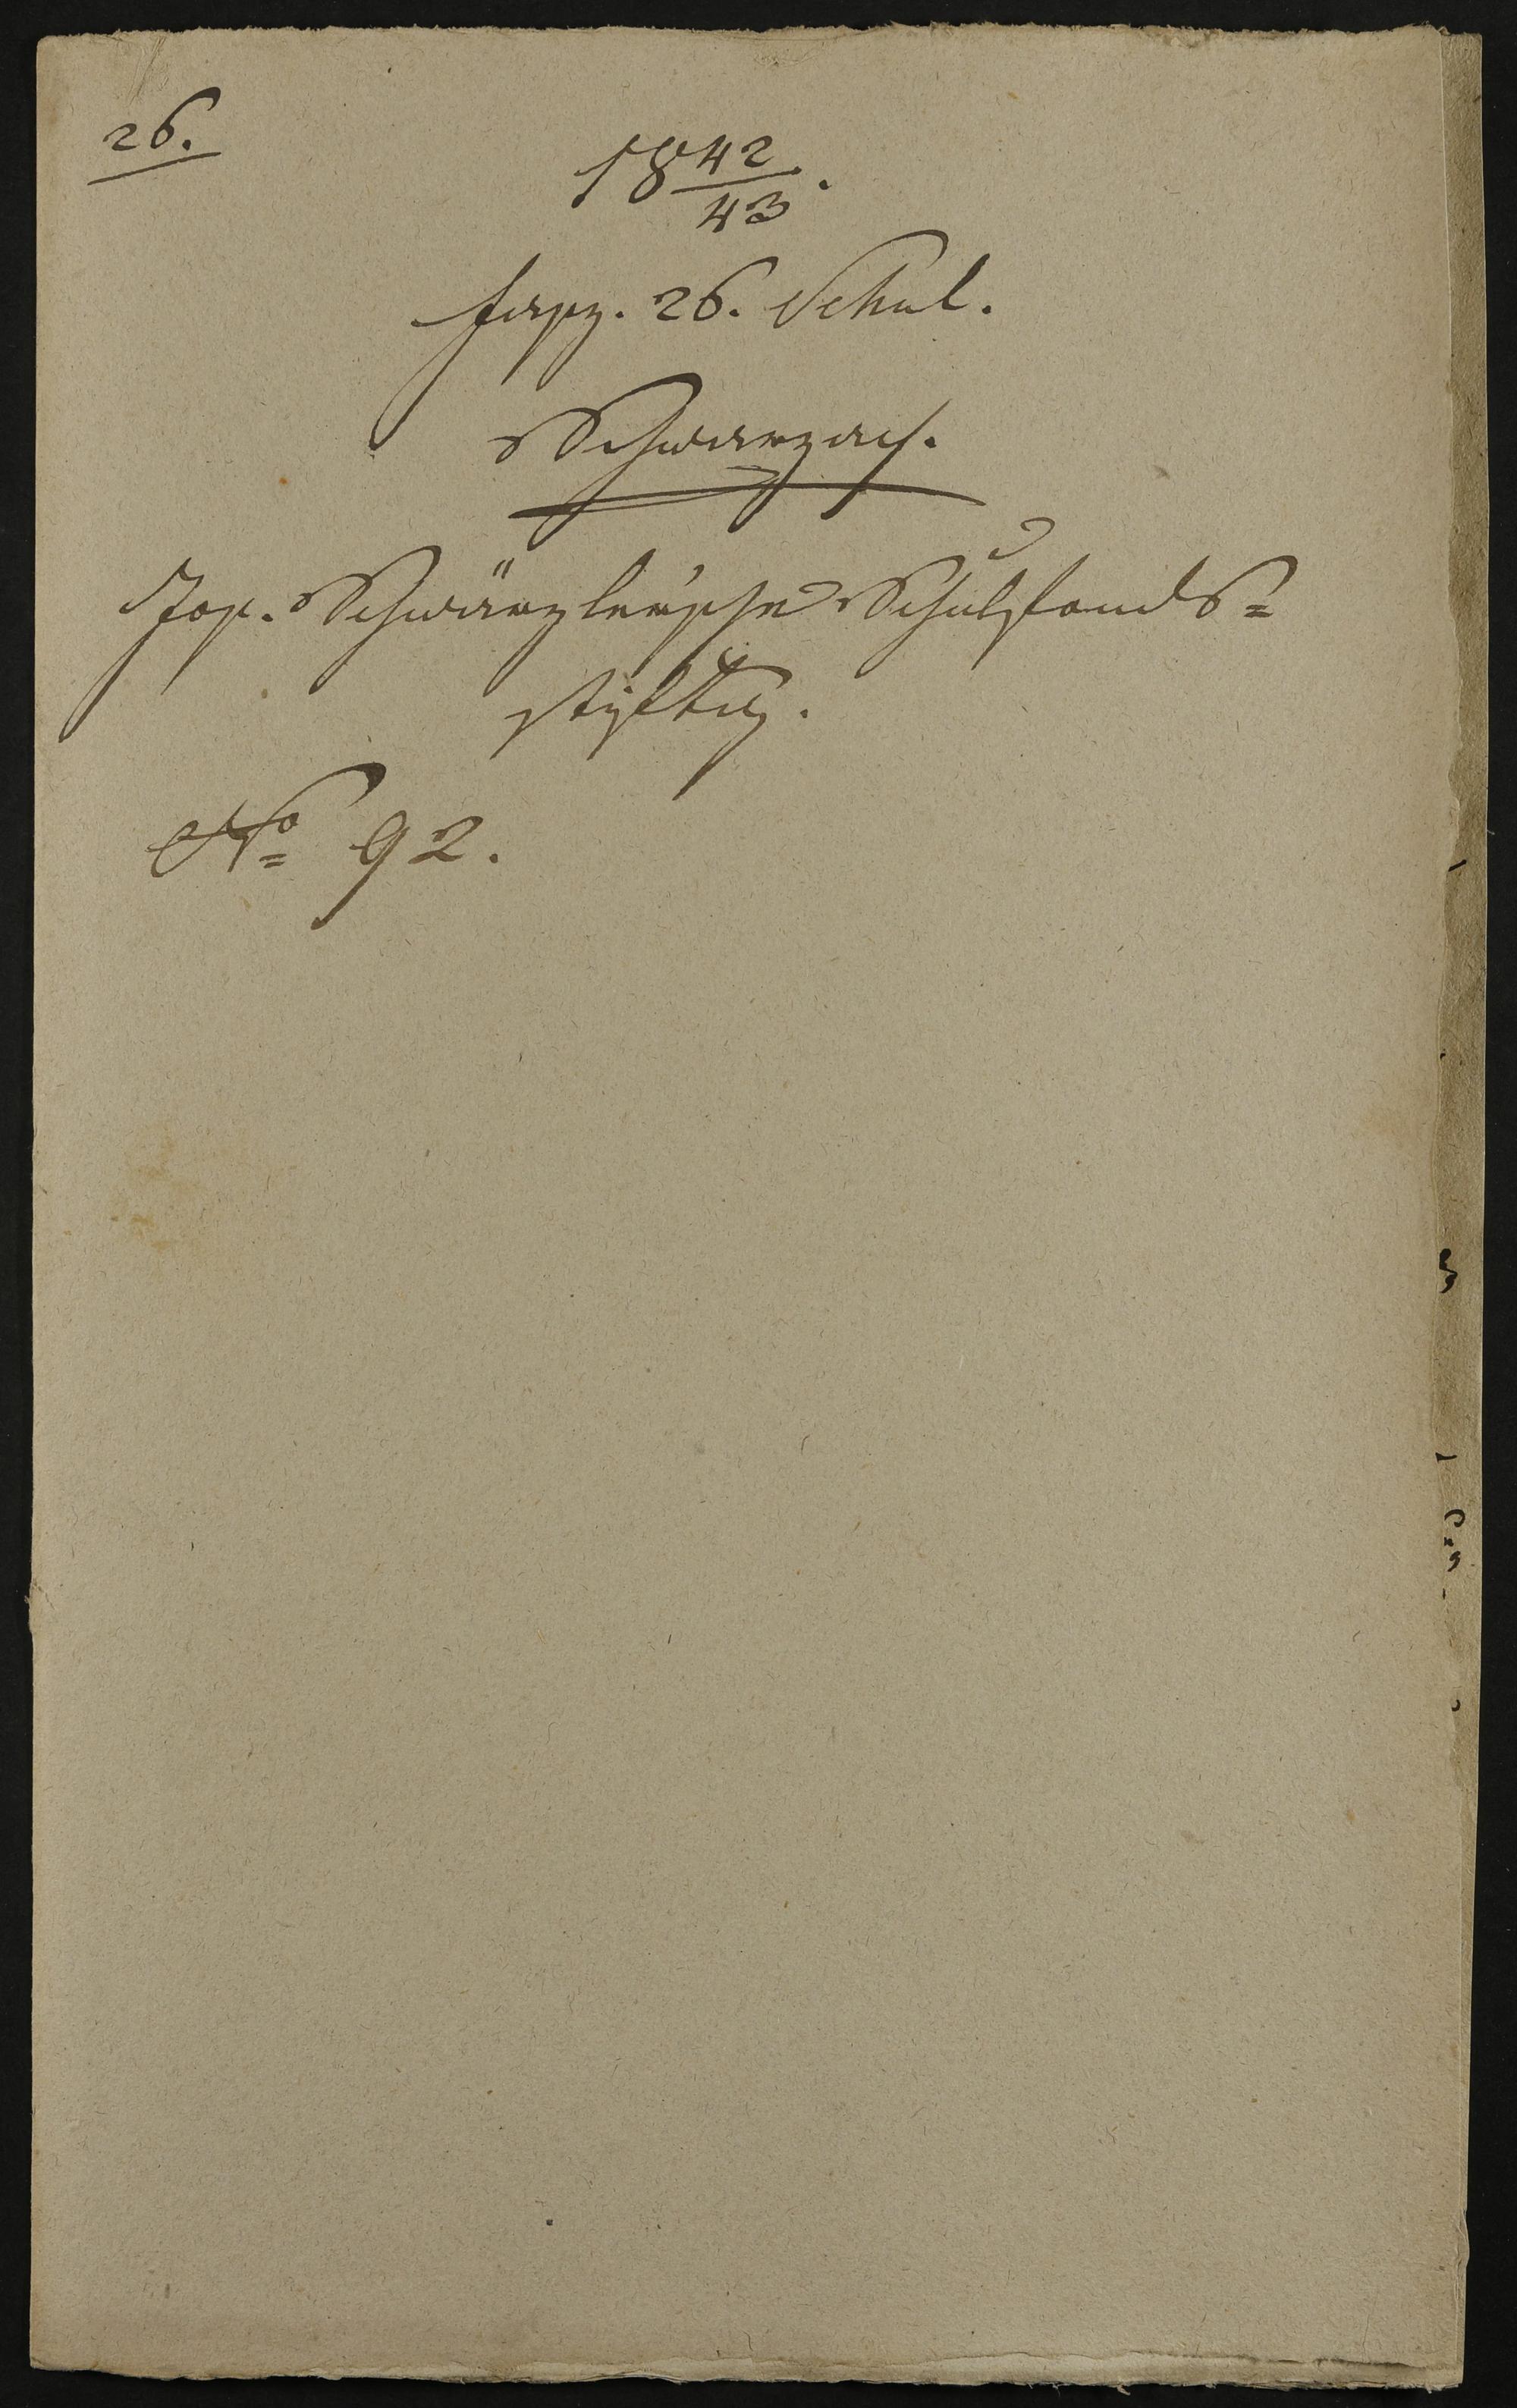 26.
18 42/43.
fasz. 26. Schul.
Schwarzach.
Jos. Schwärzler'sche Schulfonds=
stiftg.
No 92.